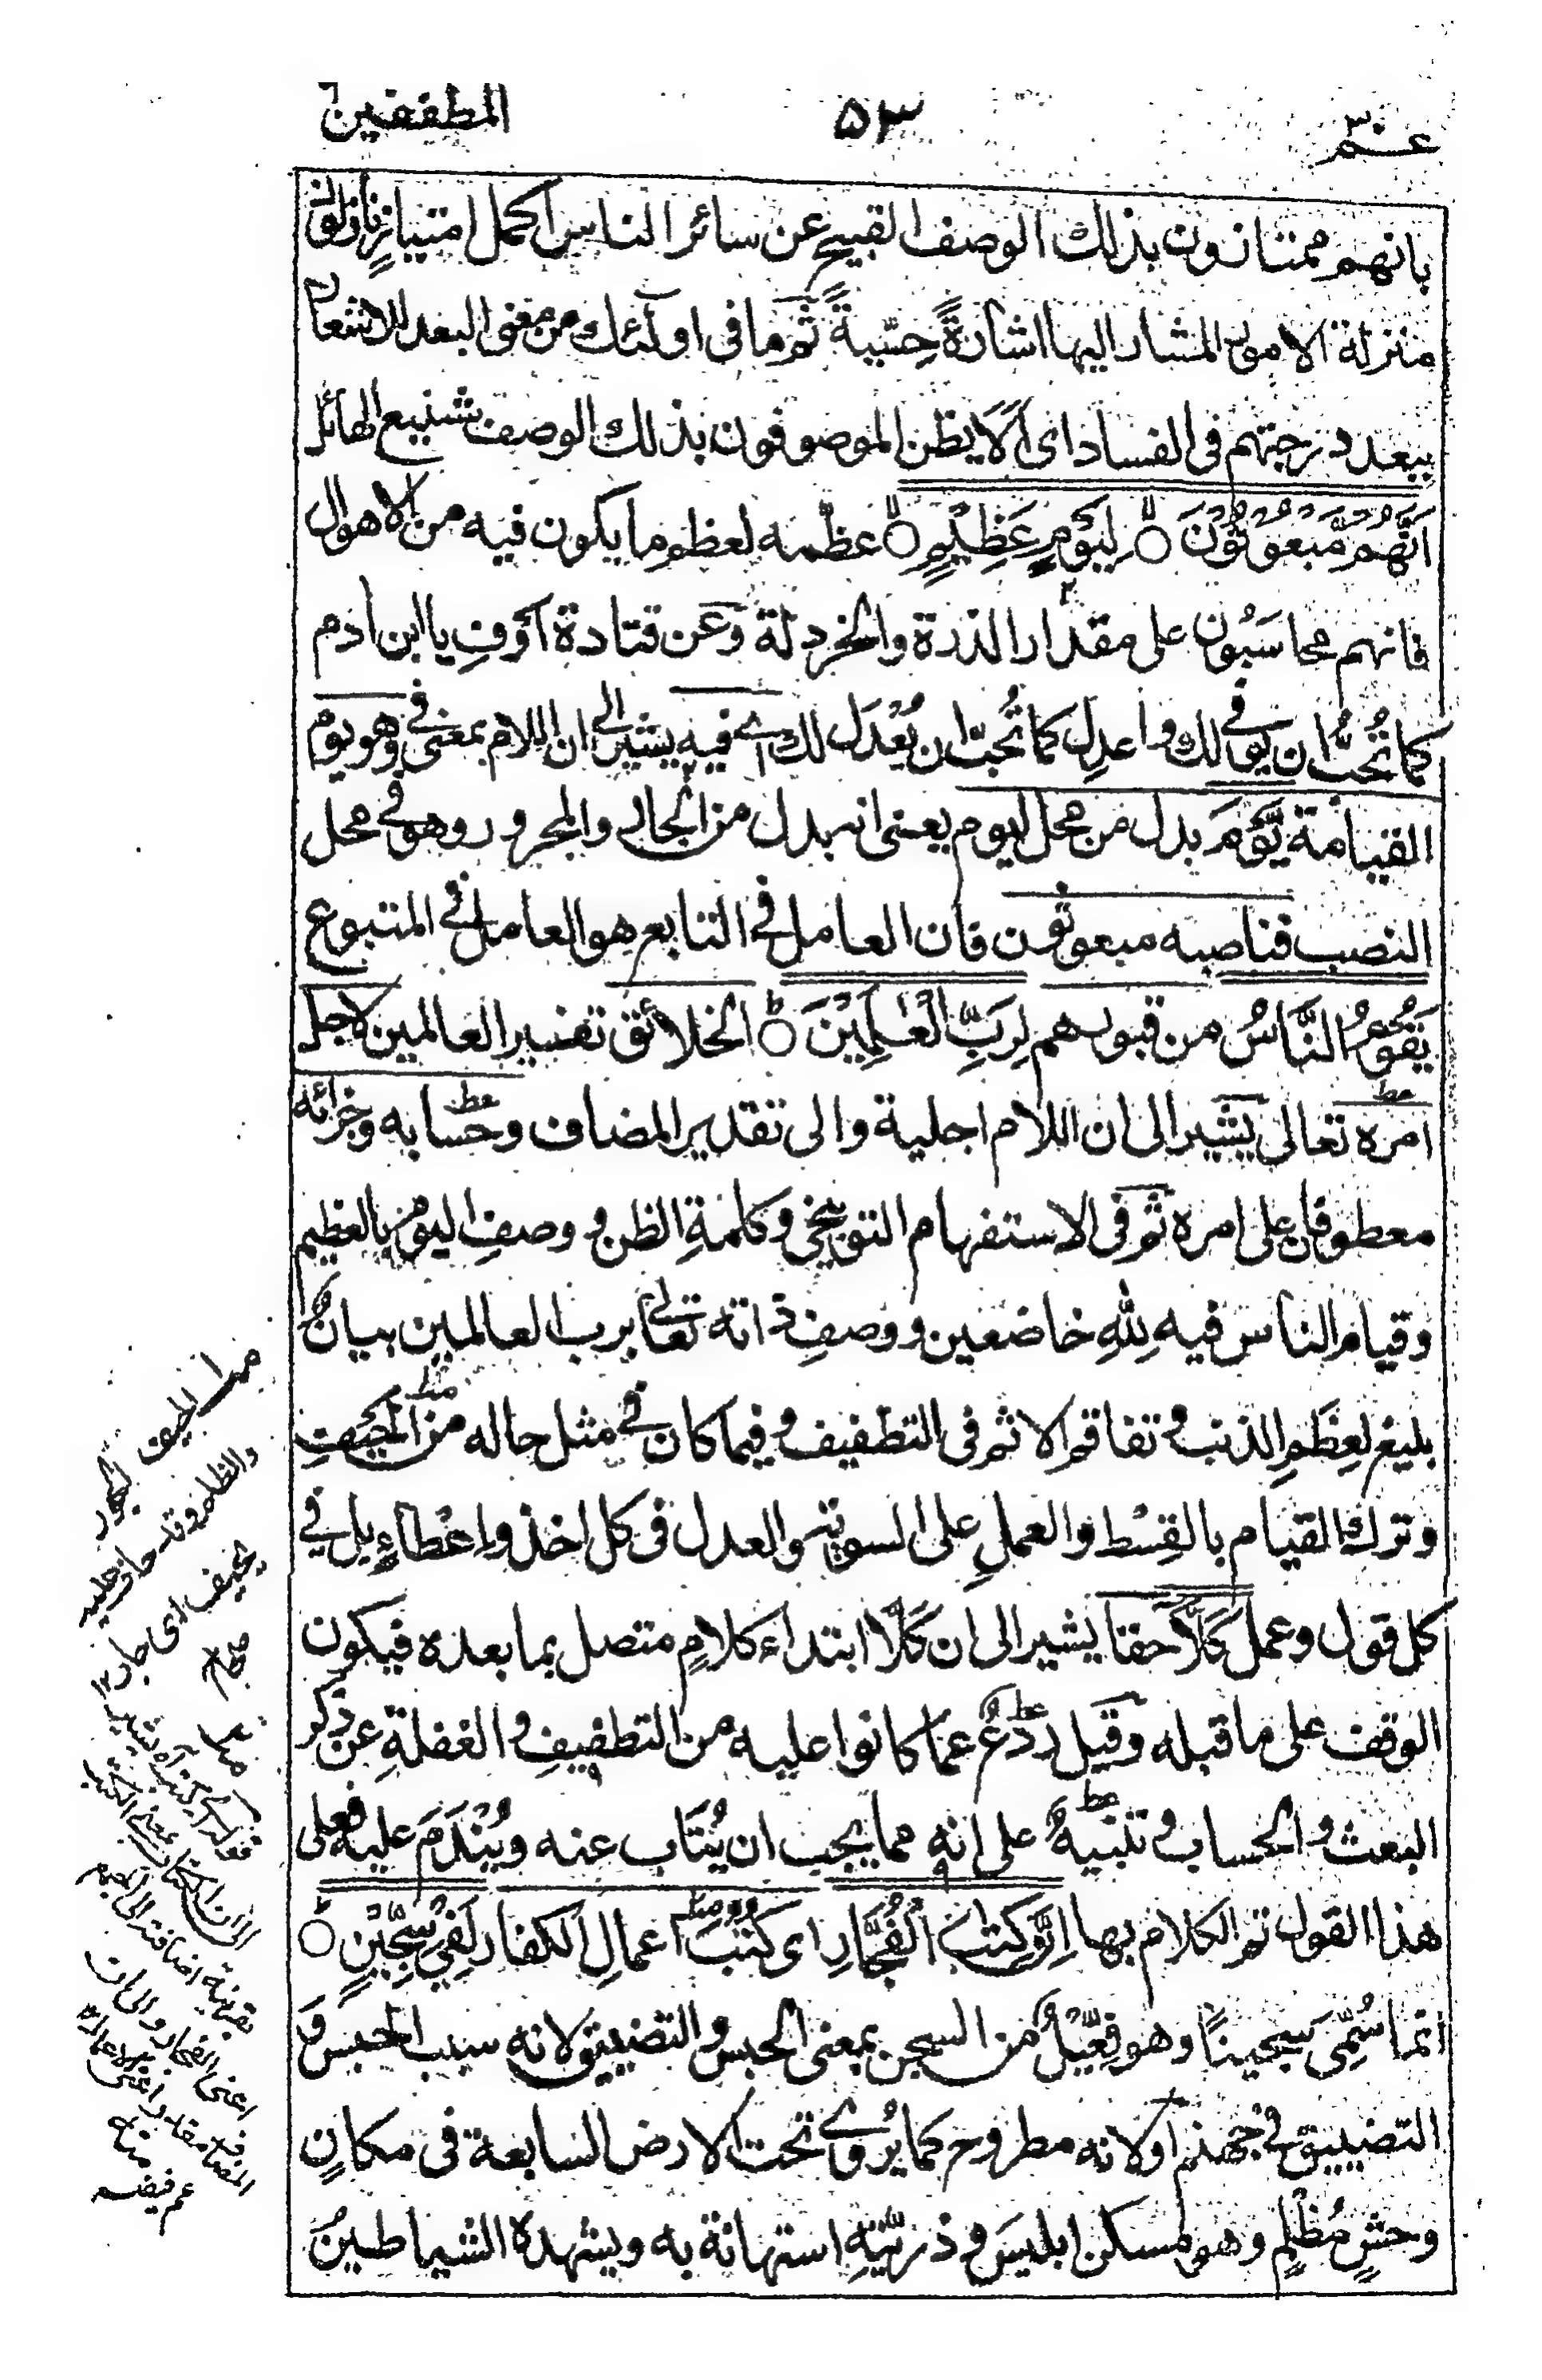 عـم ٣٠
٥٣
المطففين
بانهم ممتازون بذلك الوصف القبيح عن سائر الناس اكمل امتياز نازلون
منزلة الامور المشار اليها اشارةً حِسّيةً ثم ما فى اولٓئك من معنى البعد للاشعار
ببعد درجتهم فى الفساد اى اَلَا يظن الموصوفون بذلك الوصف شنيع الهائل
اَنَّهُمْ مَّبْعُوْثُوْنَ ۝ لِيَوْمٍ عَظِيْمٍ ۝ عظّمه لعظم ما يكون فيه من الاهوال
فانهم محاسَبُون على مقدار الذرة والخردلة وَعن قتادة اَوْفِ يا ابن اٰدم
كما تُحبُّ ان يوفى لك واَعدِل كما تُحبّ ان يُعْدَل لك اے فيه يشير الى ان اللام بمعنى فى وهو يوم
القيامة يَّوْمَ بدل من محل ليوم يعنى انه بدل من الجار والمجرور وهو فى محل
النصب فناصبه مبعوثون فان العامل فى التابع هو العامل فى المتبوع
يَقُوْمُ النَّاسُ من قبورهم لِرَبِّ الْعٰلَمِيْنَ ۝ الخلائق تفسير العالمين لاجل
امره تعالى يشير الى ان اللام اجلية والى تقدير المضاف وحسابه وجزائه
معطوفان على امره ثم فى الاستفهام التوبيخى وكلمةِ الظن ووصفِ اليوم بالعظيم
وقيام الناس فيه لِلّٰهِ خاضعين ووصفِ ذاته تعالى برب العالمين بيانٌ
بليغ لعِظَمِ الذنب وتفاقم الاثم فى التطفيف وفيما كان فى مثل حاله من الحيفِ
وترك القيام بالقِسْط والعملِ على السوية والعدل فى كل اخذ واِعْطاءٍ بل فى
كل قول وعمل كَلَّا حقا يشير الى ان كَلَّا ابتداء كلامٍ متصل بما بعده فيكون
الوقف على ما قبله وقيل رَدْعٌ عما كانوا عليه من التطفيفِ و الغفلةِ عن ذكر
البعث و الحساب و تنبيهٌ على انه مما يجب ان يُتَاب عنه ويُنْدَمَ عليه فعلى
هذا القول تم الكلام بها اِنَّ كِتٰبَ الْفُجَّارِ اى كُتُبَ اعمالِ الكفار لَفِيْ سِجِّيْنٍ ۝
انما سُمِّى سجينًا وهو فِعِّيْلٌ من السجن بمعنى الحبس و التضييق لانه سبب الحبس و
التضييق فى جهنم اَو لانه مطروح كما يُروٰى تحت الارض السابعة فى مكانٍ
وحشٍ مُظْلِمٍ وهو مسكن ابليسَ و ذريّتِهِ استهانة به ويشهده الشياطينُ
من الحيف الجور
والظلم وقد حاف عليه
يحيف اى جار
صحاح
الى ان الكتاب بمعنى الكتب
بقرينة اضافته الى الجمع
اعنى الفجار والى ان
المضاف مقدر اعنى الاعمال
منه
عم فيضه